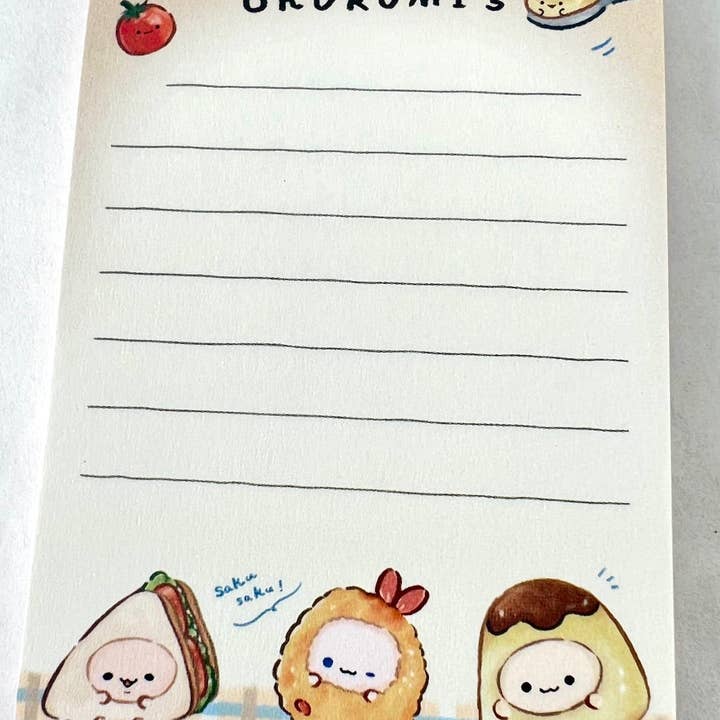 OKURUMI's
saku
saku!